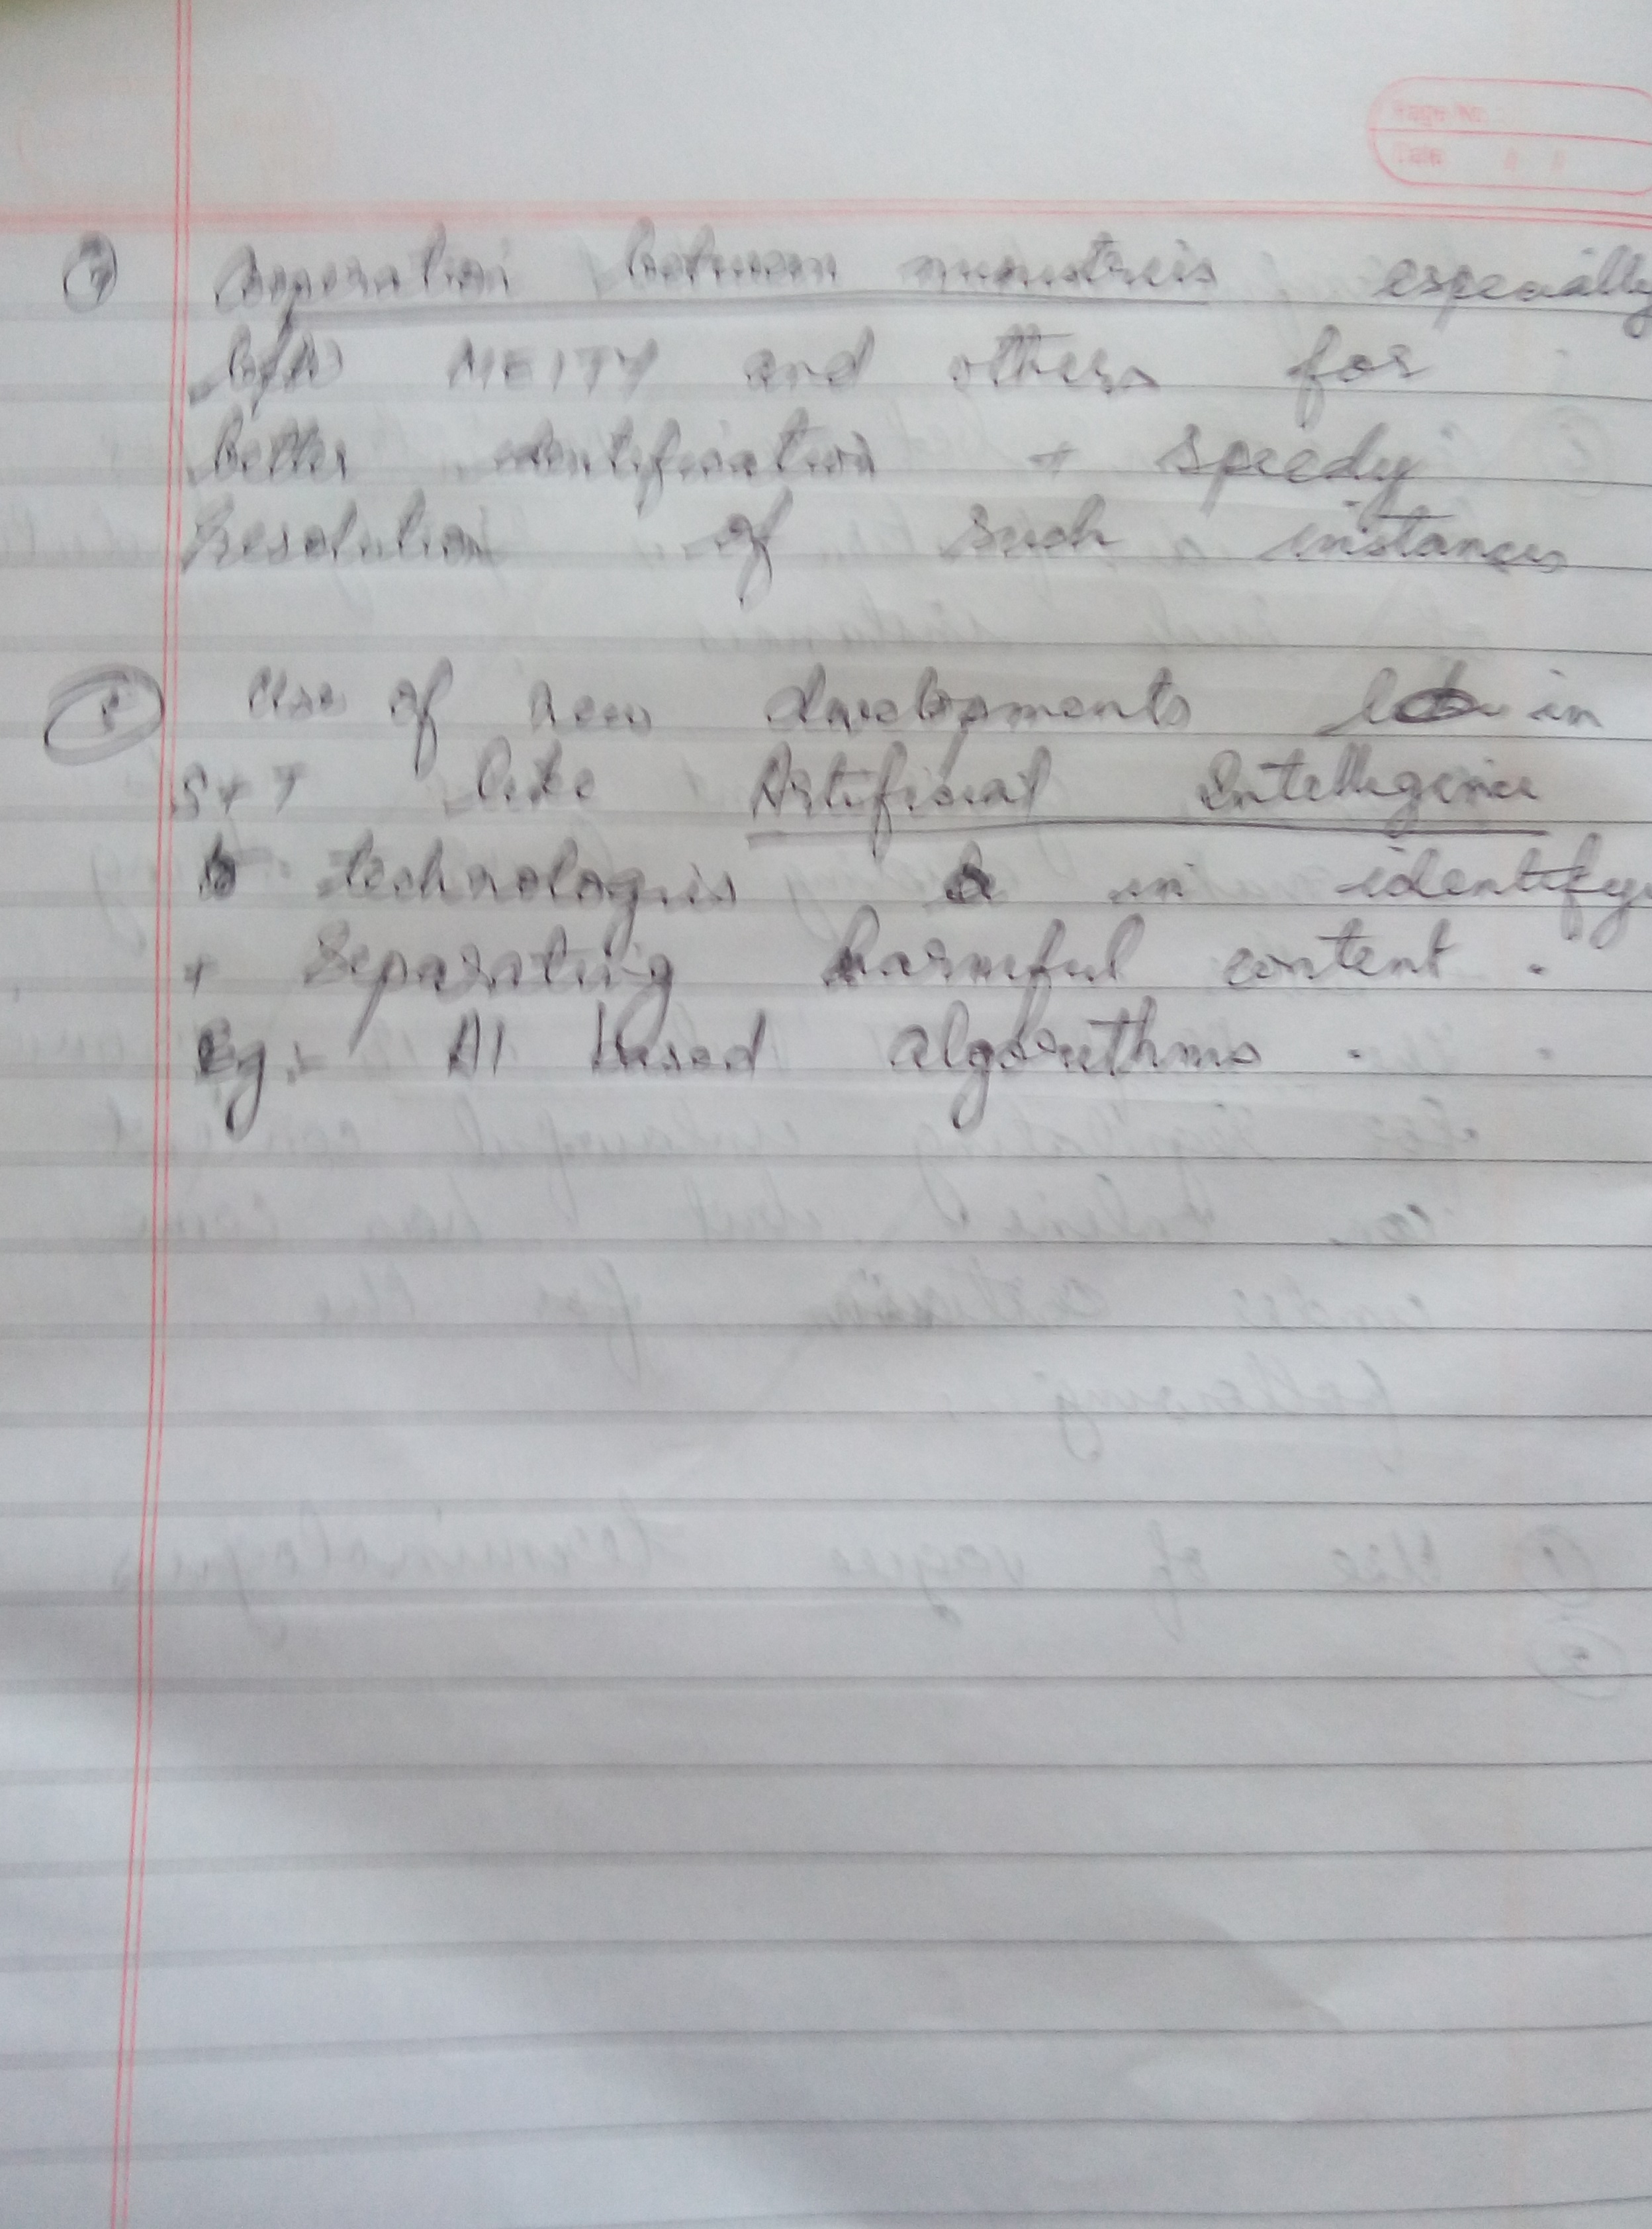 Page No.:
Date / /
④ Cooperation between ministries especially
b/w MEITY and others for
better identification + speedy
resolution of such instances
⑤ Use of new developments in
S+T like Artificial Intelligence
technologies in identify
+ Separating harmful content.
Eg:- AI based algorithms.